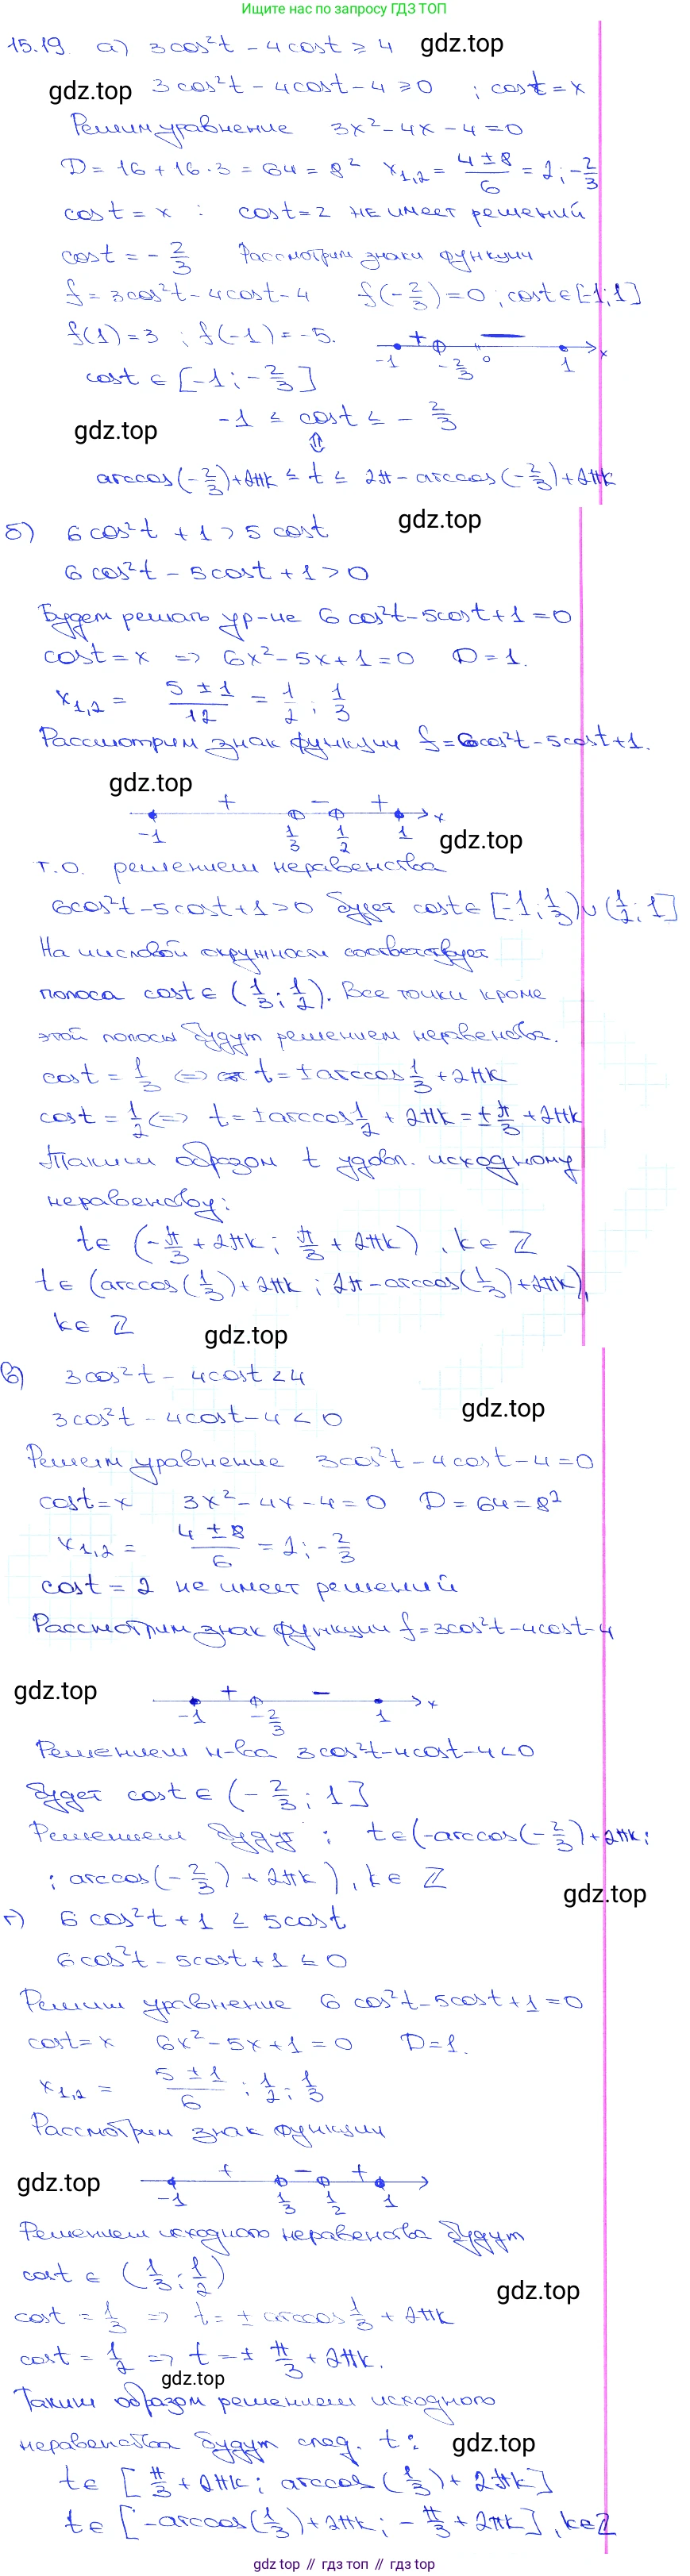 Ищите нас по запросу ГДЗ ТОП
15.19 а) 3cos²t - 4cost ≥ 4 gdz.top
gdz.top 3cos²t - 4cost - 4 ≥ 0 ; cost = x
Решим уравнение 3x² - 4x - 4 = 0
D = 16 + 16·3 = 64 = 8² x₁,₂ = (4 ± 8)/6 = 2; -2/3
cost = x : cost = 2 не имеет решений
cost = -2/3 Рассмотрим знаки функции
f = 3cos²t - 4cost - 4 f(-2/3) = 0 ; cost ∈ [-1; 1]
f(1) = 3 ; f(-1) = -5.
-1 + -2/3 0 — 1 x
cost ∈ [-1; -2/3]
-1 ≤ cost ≤ -2/3
gdz.top ⇕
arccos(-2/3) + 2πk ≤ t ≤ 2π - arccos(-2/3) + 2πk
gdz.top
б) 6cos²t + 1 > 5cost
6cos²t - 5cost + 1 > 0
Будем решать ур-ие 6cos²t - 5cost + 1 = 0
cost = x => 6x² - 5x + 1 = 0 D = 1.
x₁,₂ = (5 ± 1)/12 = 1/2 ; 1/3
Рассмотрим знак функции f = 6cos²t - 5cost + 1.
gdz.top
-1 + 1/3 - 1/2 + 1 x
gdz.top
т.о. решением неравенства
6cos²t - 5cost + 1 > 0 будет cost ∈ [-1; 1/3) ∪ (1/2; 1]
На числовой окружности соответствует
полоса cost ∈ (1/3; 1/2). Все точки кроме
этой полосы будут решением неравенства.
cost = 1/3 <=> t = ± arccos 1/3 + 2πk
cost = 1/2 <=> t = ± arccos 1/2 + 2πk = ± π/3 + 2πk
Таким образом t удовл. исходному
неравенству:
t ∈ (-π/3 + 2πk ; π/3 + 2πk), k ∈ Z
t ∈ (arccos(1/3) + 2πk ; 2π - arccos(1/3) + 2πk),
k ∈ Z
gdz.top
в) 3cos²t - 4cost < 4
3cos²t - 4cost - 4 < 0 gdz.top
Решим уравнение 3cos²t - 4cost - 4 = 0
cost = x 3x² - 4x - 4 = 0 D = 64 = 8²
x₁,₂ = (4 ± 8)/6 = 2; -2/3
cost = 2 не имеет решений
Рассмотрим знак функции f = 3cos²t - 4cost - 4
gdz.top
-1 + -2/3 — 1 x
Решением н-ва 3cos²t - 4cost - 4 < 0
будет cost ∈ (-2/3; 1]
Решением будут : t ∈ (-arccos(-2/3) + 2πk;
; arccos(-2/3) + 2πk), k ∈ Z
gdz.top
г) 6cos²t + 1 ≤ 5cost
6cos²t - 5cost + 1 ≤ 0
Решим уравнение 6cos²t - 5cost + 1 = 0
cost = x 6x² - 5x + 1 = 0 D = 1.
x₁,₂ = (5 ± 1)/6 ; 1/2 ; 1/3
Рассмотрим знак функции
gdz.top
-1 + 1/3 - 1/2 + 1
Решением исходного неравенства будут
cost ∈ (1/3; 1/2)
gdz.top
cost = 1/3 => t = ± arccos 1/3 + 2πk
cost = 1/2 => t = ± π/3 + 2πk.
gdz.top
Таким образом решением исходного
неравенства будут след. t:
gdz.top
t ∈ [π/3 + 2πk ; arccos(1/3) + 2πk]
t ∈ [-arccos(1/3) + 2πk ; -π/3 + 2πk], k ∈ Z
gdz top // гдз топ // gdz.top